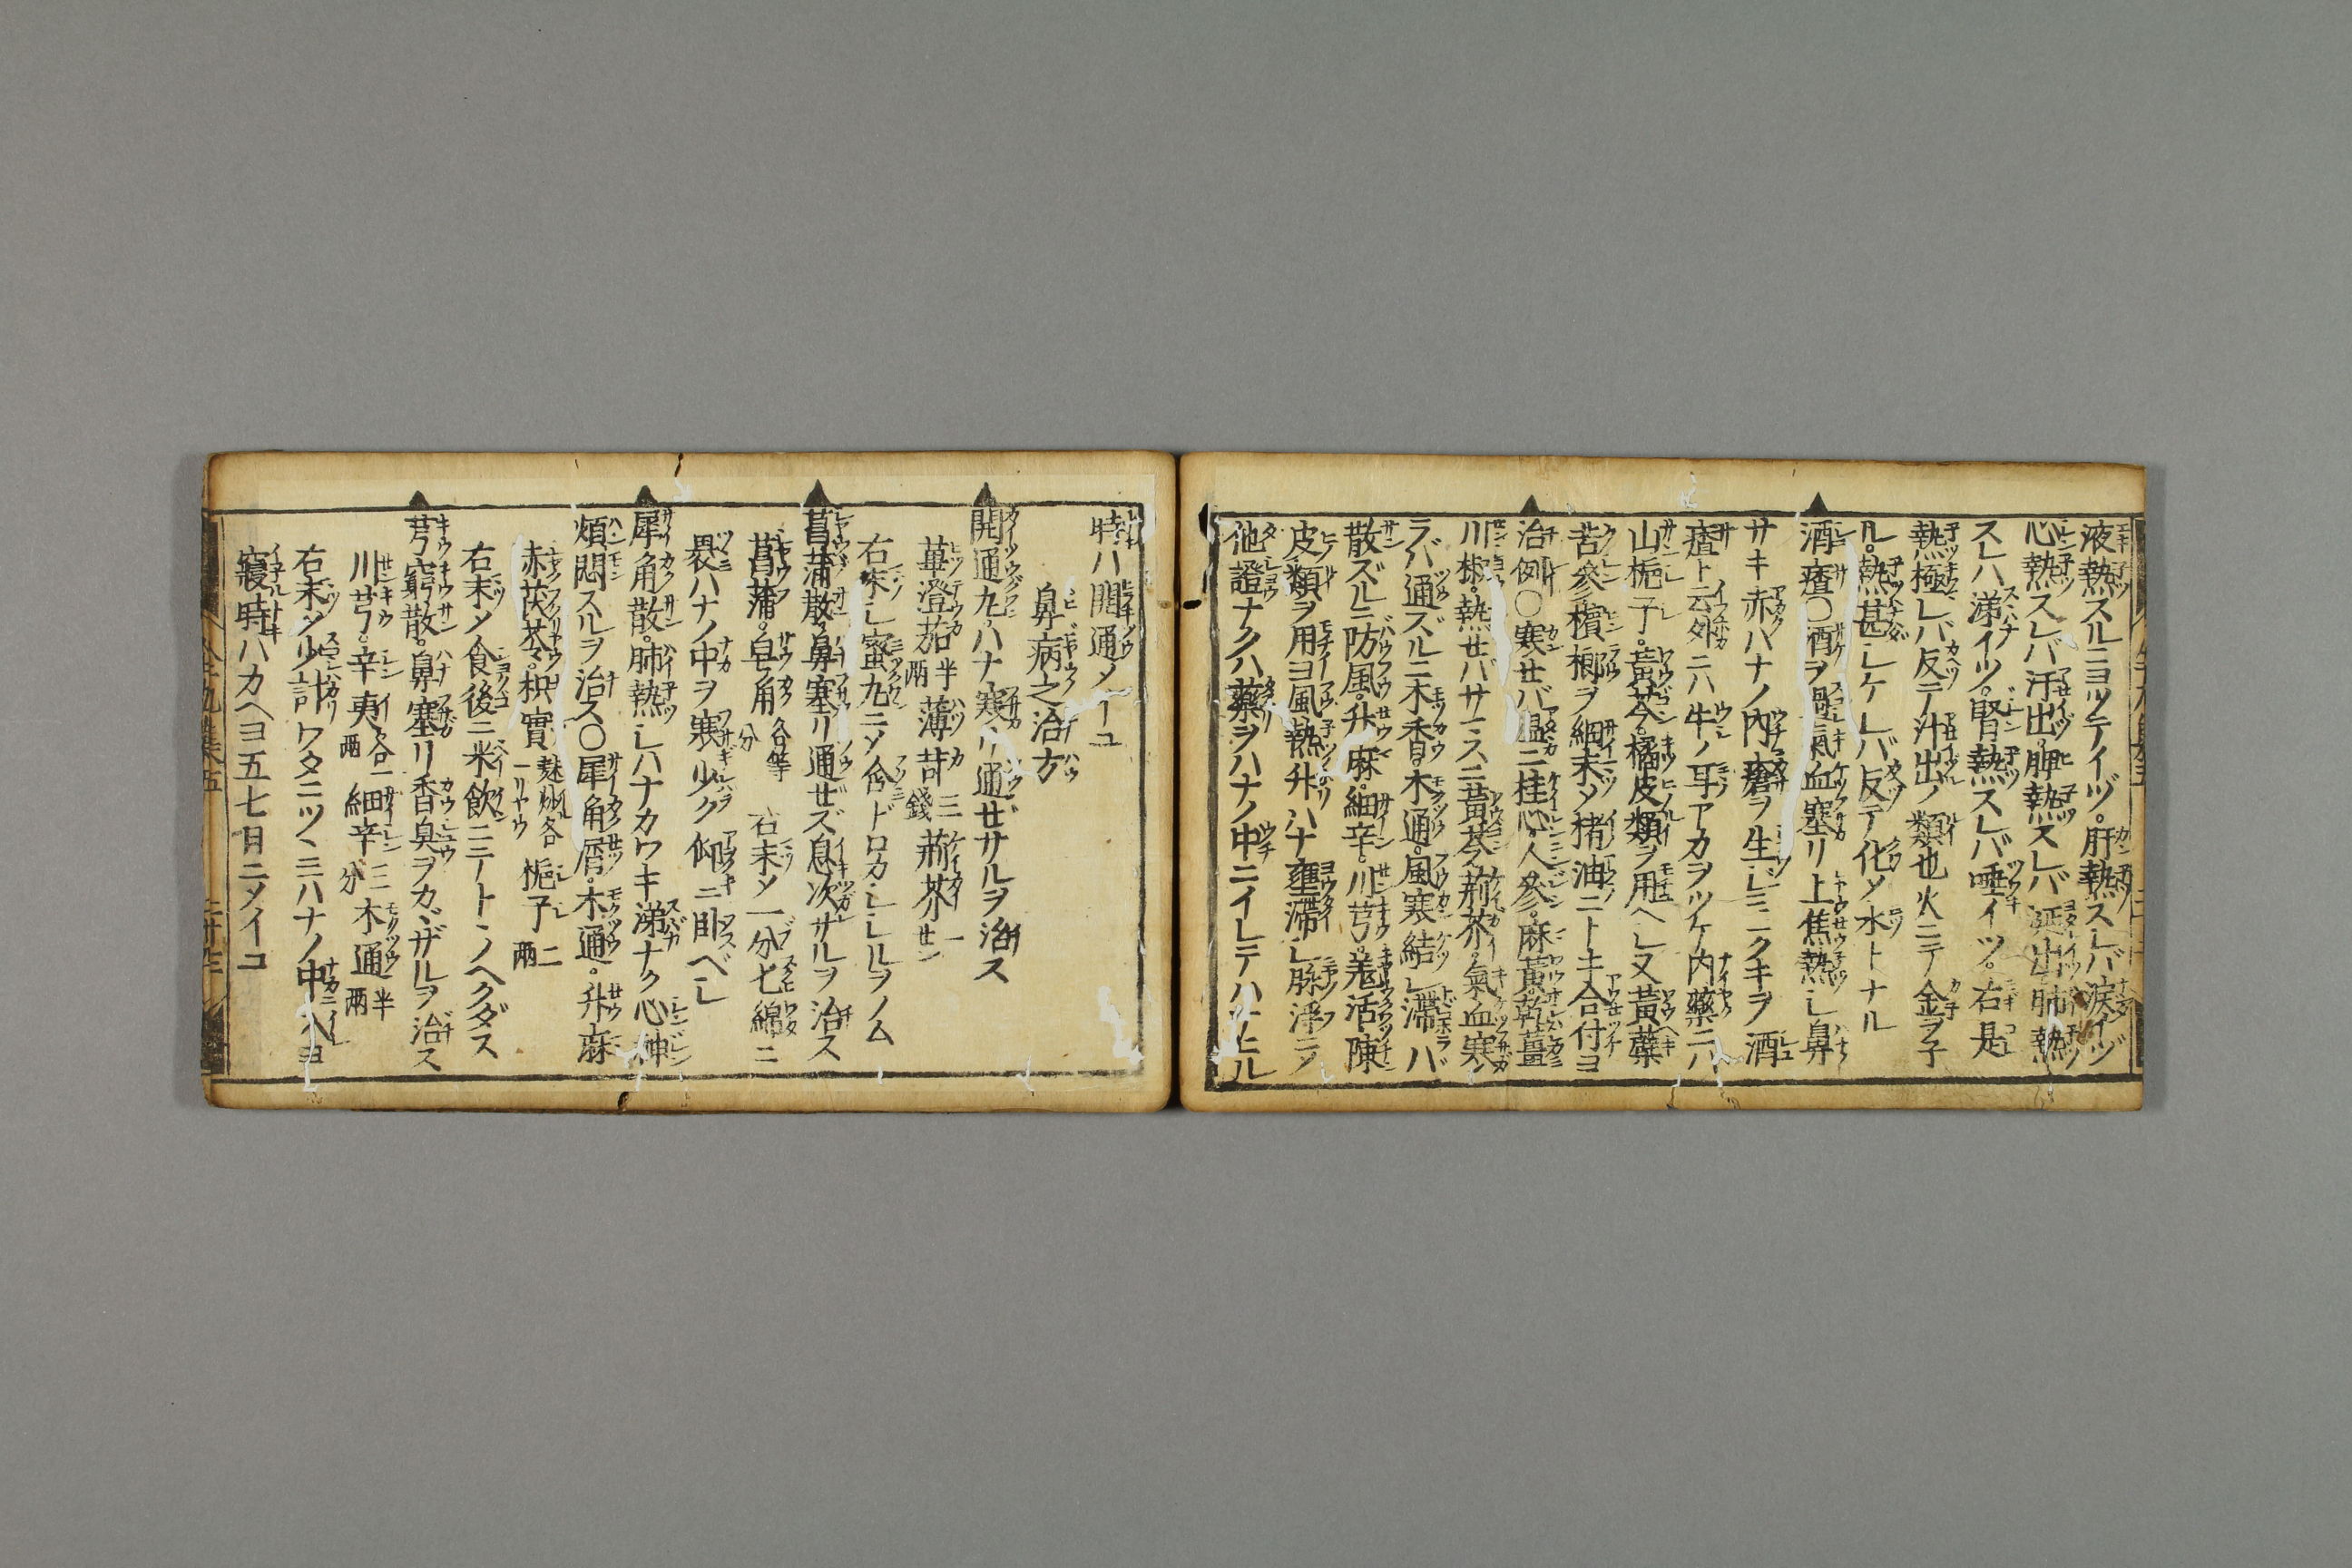 液熱スルニヨツテイヅ。肝熱スレバ涙イヅ
心熱スレバ汗出。脾熱スレバ涎出肺熱
スレハ涕イツ。腎熱スレバ唾イツ。右是
熱極レバ反テ汁出ノ類也火ニテ金ヲ子
ル。熱甚シケレバ反テ化〆水トナル
酒齄〇酒ヲ過氣血塞リ上焦熱シ鼻
サキ赤ハナノ内瘡ヲ生シミニクキヲ酒
齄ト云外ニハ牛ノ耳アカヲツケ内藥ニハ
山梔子。黃芩。橘皮類ヲ用ヘシ又黃蘗
苦參檳榔ヲ細末〆猪油ニトキ合付ヨ
治例〇寒せバ温ニ桂心。人參。麻黃。乾薑
川椒。熱せバサマスニ黃芩。荊芥。氣血寒
ラバ通ズルニ木香。木通。風寒結シ滯バ
散ズルニ防風。升麻。細辛。川芎。羗活。陳
皮類ヲ用ヨ風熱升ハナ壅滯シ膿淨ニ〆
他證ナクハ藥ヲハナノ中ニイレテハナヒル
時ハ開通〆イユ
鼻病之治方
開通丸。ハナ寒リ通せサルヲ治ス
蓽澄茄半兩 薄荷三錢 荊芥一せン
右末シ蜜丸ニ〆含ドロカシシルヲノム
菖蒲散。鼻塞リ通せズ息次サルヲ治ス
菖蒲。皂角各等分 右末〆一分七綿ニ
褁ハナノ中ヲ寒少ク仰ニ卧スベシ
犀角散。肺熱シハナカワキ涕ナク心神
煩悶スルヲ治ス〇犀角屑。木通。升麻
赤茯苓。枳實麩炒各一リヤウ 梔子二兩
右末〆食後ニ米飲ニテトヽノヘクダス
芎藭散。鼻塞リ香臭ヲカヾザルヲ治ス
川芎。辛夷各一兩 細辛三分 木通半兩
右末〆少計ワタニツヽミハナノ中ニ入ヨ
寢時ハカヘヨ五七日ニ〆イユ